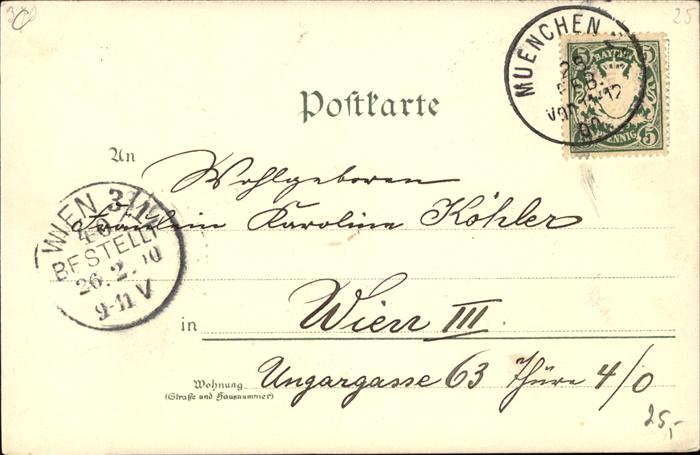 25
MUENCHEN
25
FEB.
VOR 11-12
00
5 BAYERN 5
5 PFENNIG 5
Postkarte
An
Wohlgeboren
Fräulein Karoline Köhler
WIEN 3/1
BESTELLT
26. 2. 00
9-11 V
in Wien III.
Wohnung Ungargasse 63 Thüre 4/0
(Straße und Hausnummer)
25,-